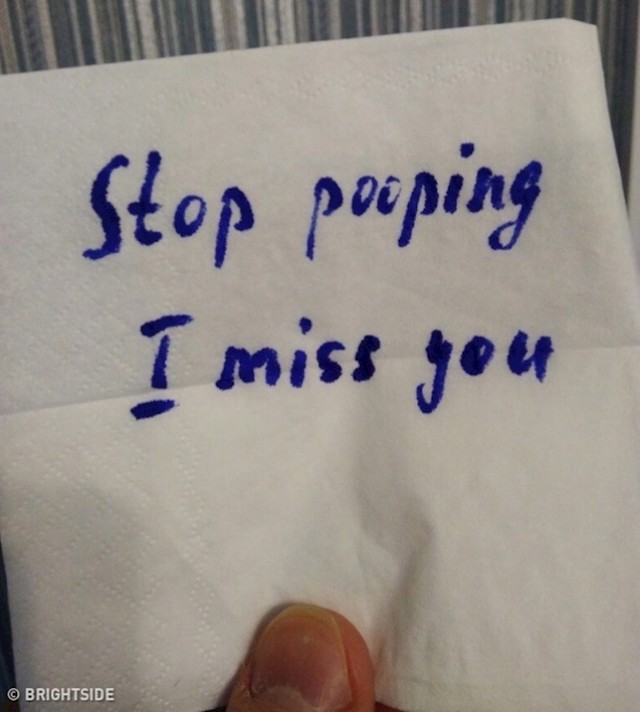 Stop pooping
I miss you
© BRIGHTSIDE